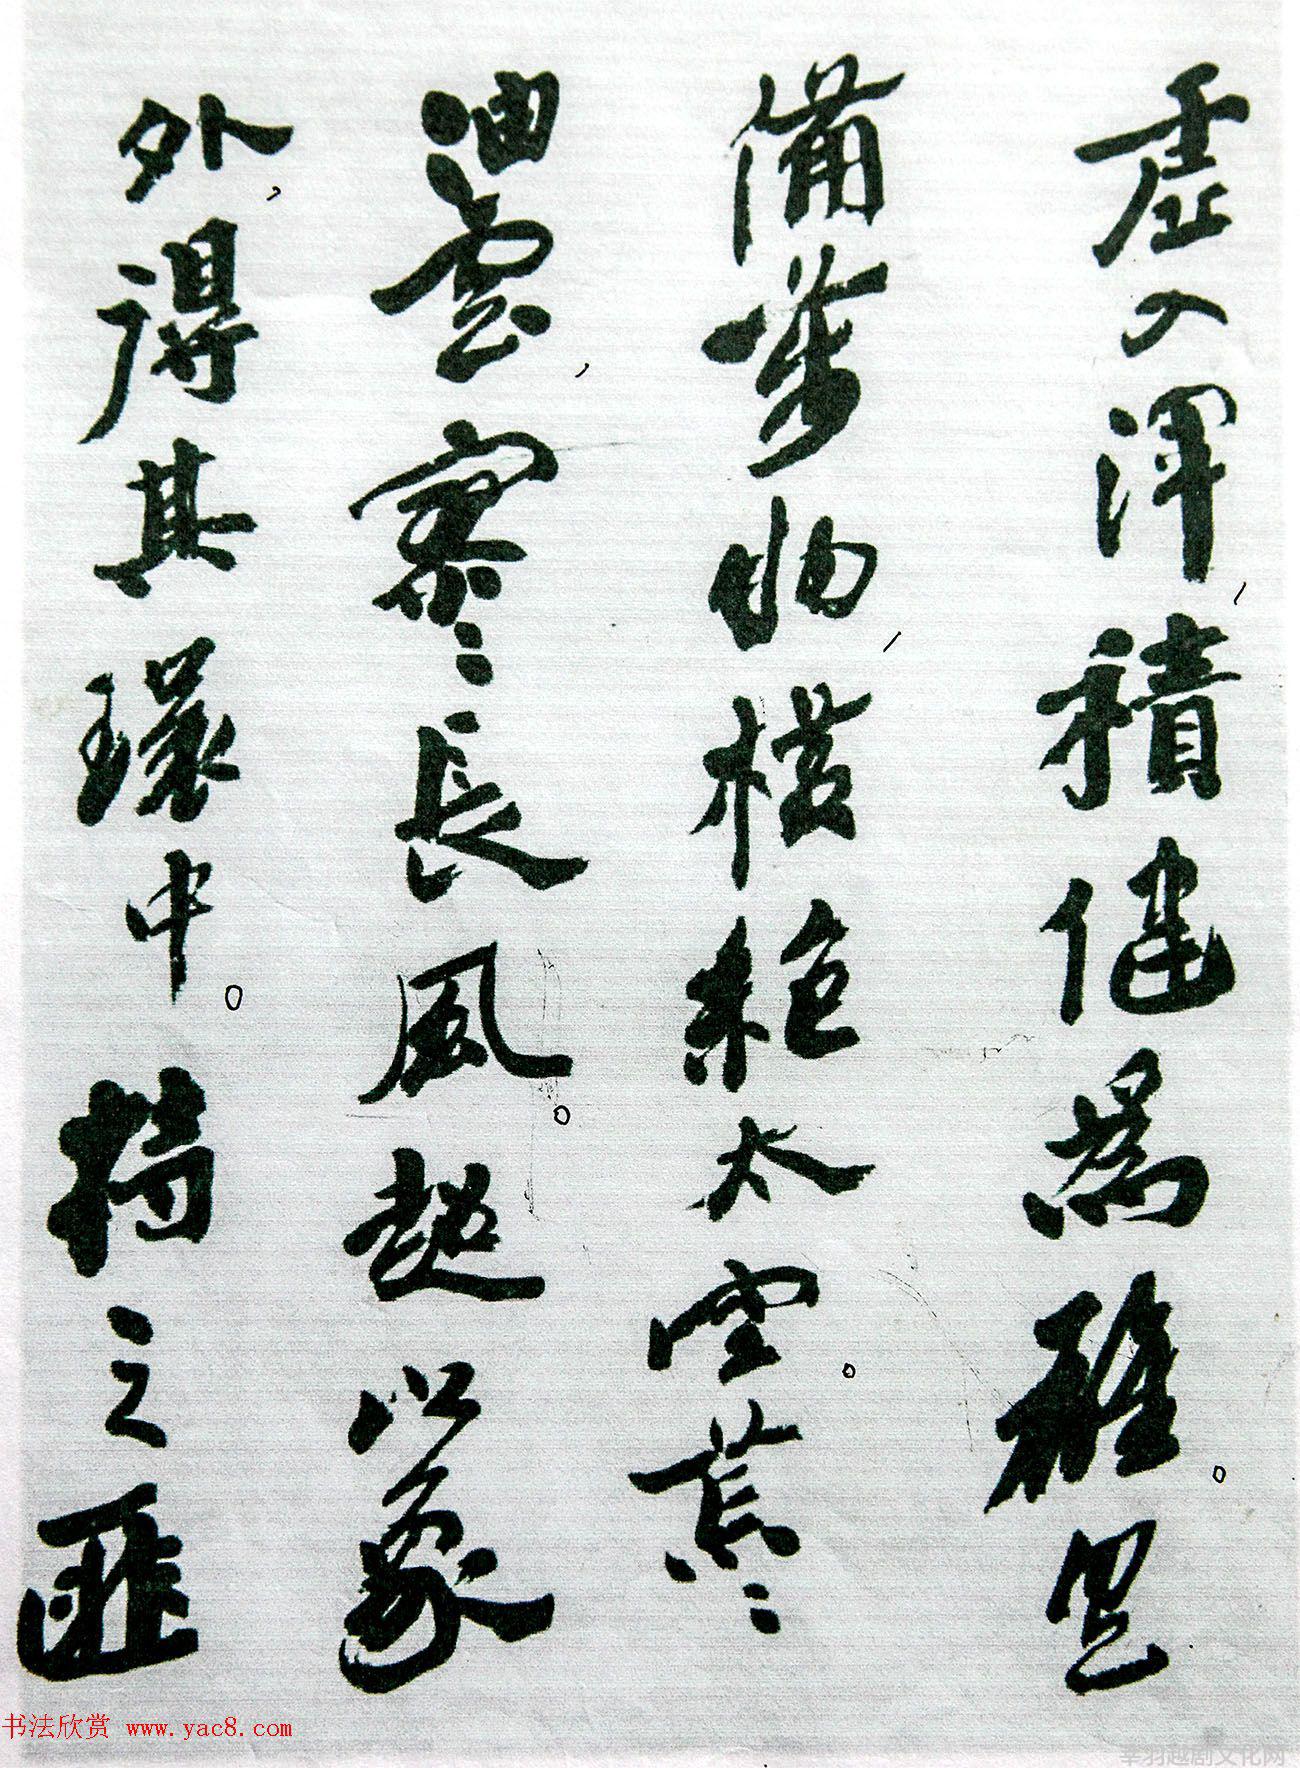 虛入渾，積健為雄。具
備萬物，橫絕太空。荒々
油雲，寥々長風。超以象
外，得其環中。持之匪
书法欣赏 www.yac8.com
莘羽越剧文化网